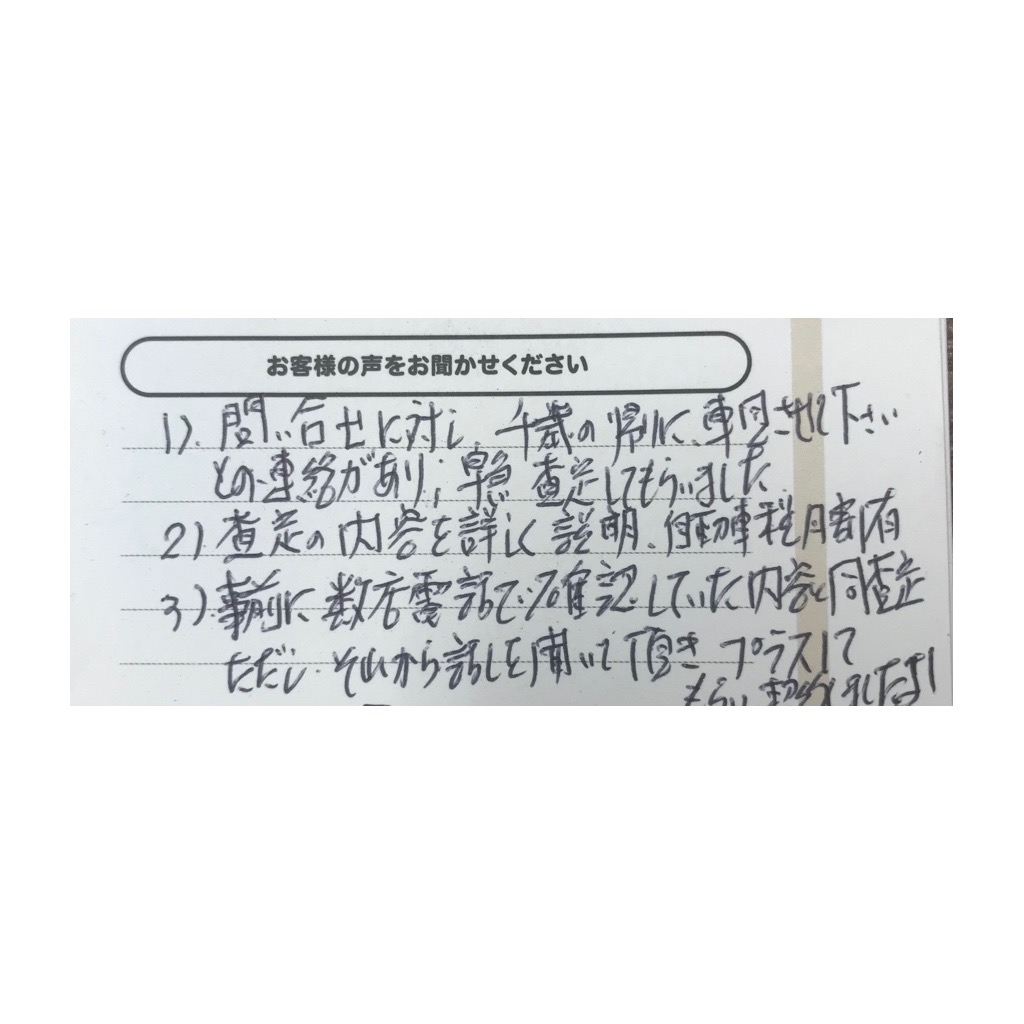 お客様の声をお聞かせください
1). 問い合せに対し、千歳の帰りに、車見させて下さい
との連絡があり、早急査定してもらいました
2) 査定の内容を詳しく説明、自動車税月割有
3). 事前に数店電話で確認していた内容と同査定
ただし、それから話しを聞いて頂き プラスして
もらい 契約しました